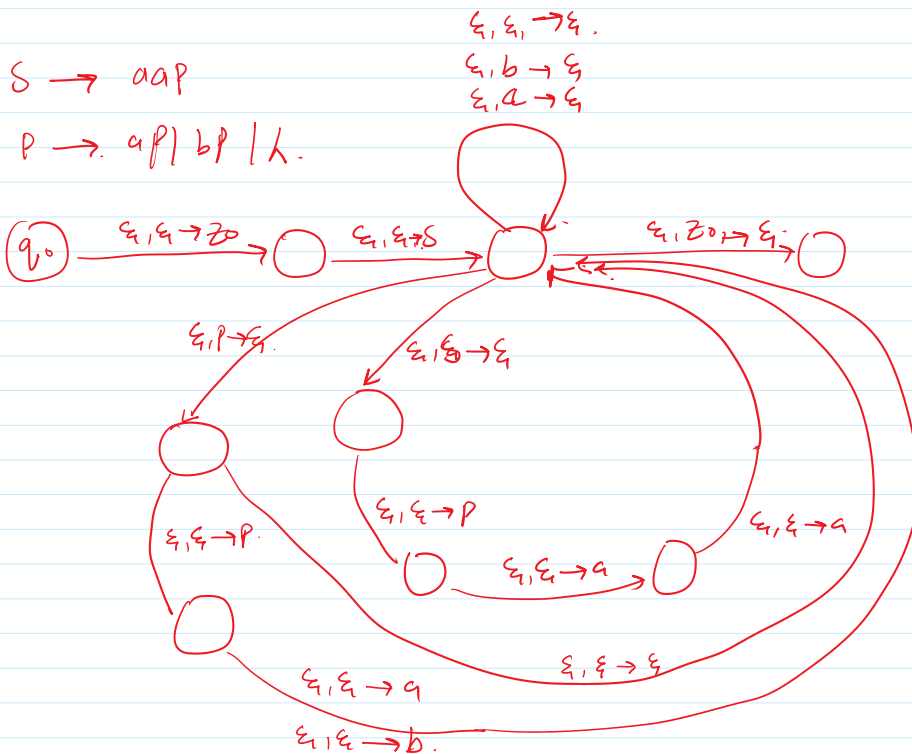 ε, ε, → ε.
ε, b → ε
ε, a → ε
S → aap
P → aP | bP | λ.
q0
ε, ε → z0
ε, ε → S
ε, z0, → ε
ε, P → ε
ε, → ε
ε, ε → P
ε, ε → P
ε, ε → a
ε, ε → a
ε, ε → ε
ε, ε → a
ε, ε → b.